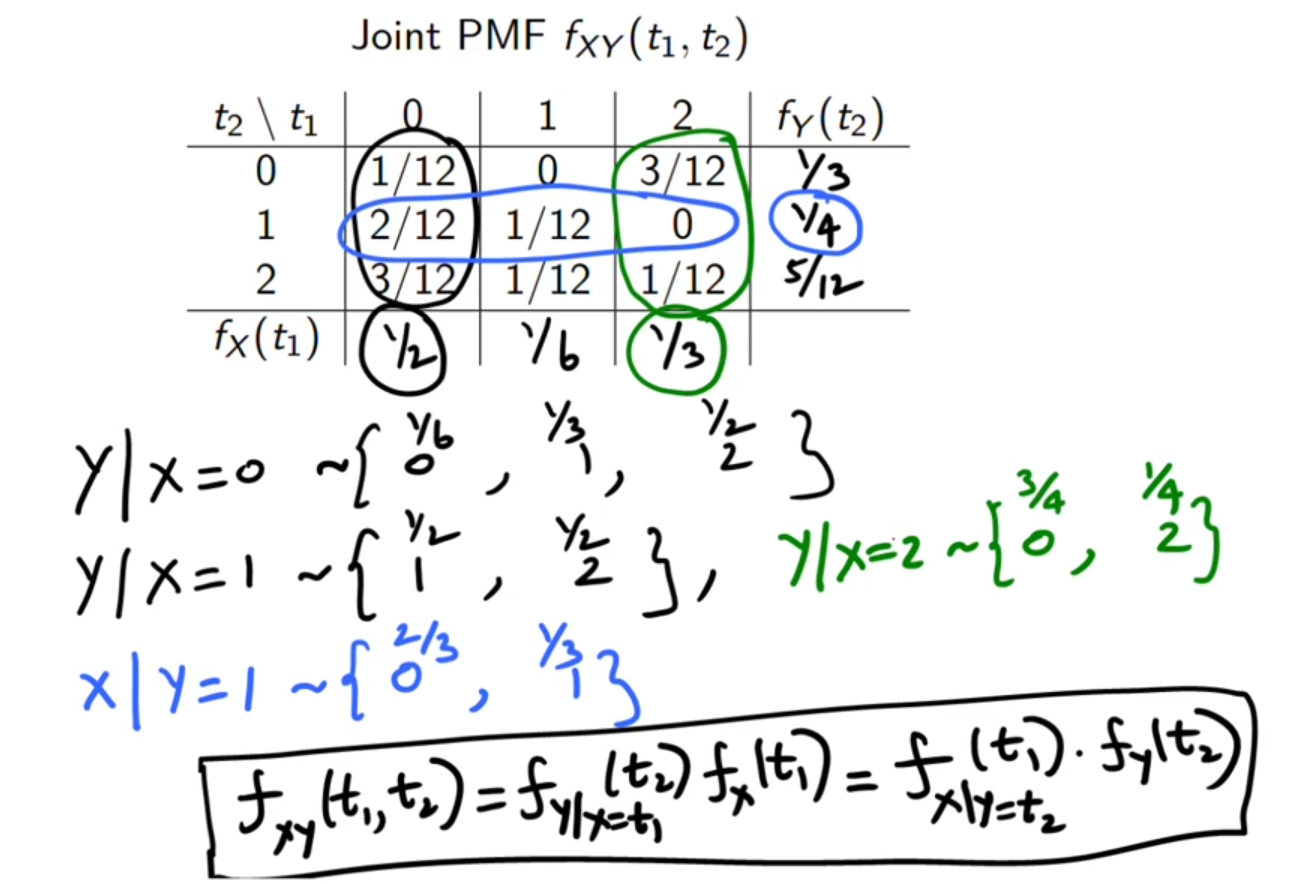 Joint PMF f_XY(t₁, t₂)
t₂ \ t₁ 0 1 2 f_Y(t₂)
0 1/12 0 3/12 1/3
1 2/12 1/12 0 1/4
2 3/12 1/12 1/12 5/12
f_X(t₁) 1/2 1/6 1/3
Y|X=0 ~ { 0 1/6 , 1 1/3 , 2 1/2 }
Y|X=1 ~ { 1 1/2 , 2 1/2 } , Y|X=2 ~ { 0 3/4 , 2 1/4 }
X|Y=1 ~ { 0 2/3 , 1 1/3 }
f_XY(t₁, t₂) = f_Y|X=t₁(t₂) f_X(t₁) = f_X|Y=t₂(t₁) · f_Y(t₂)